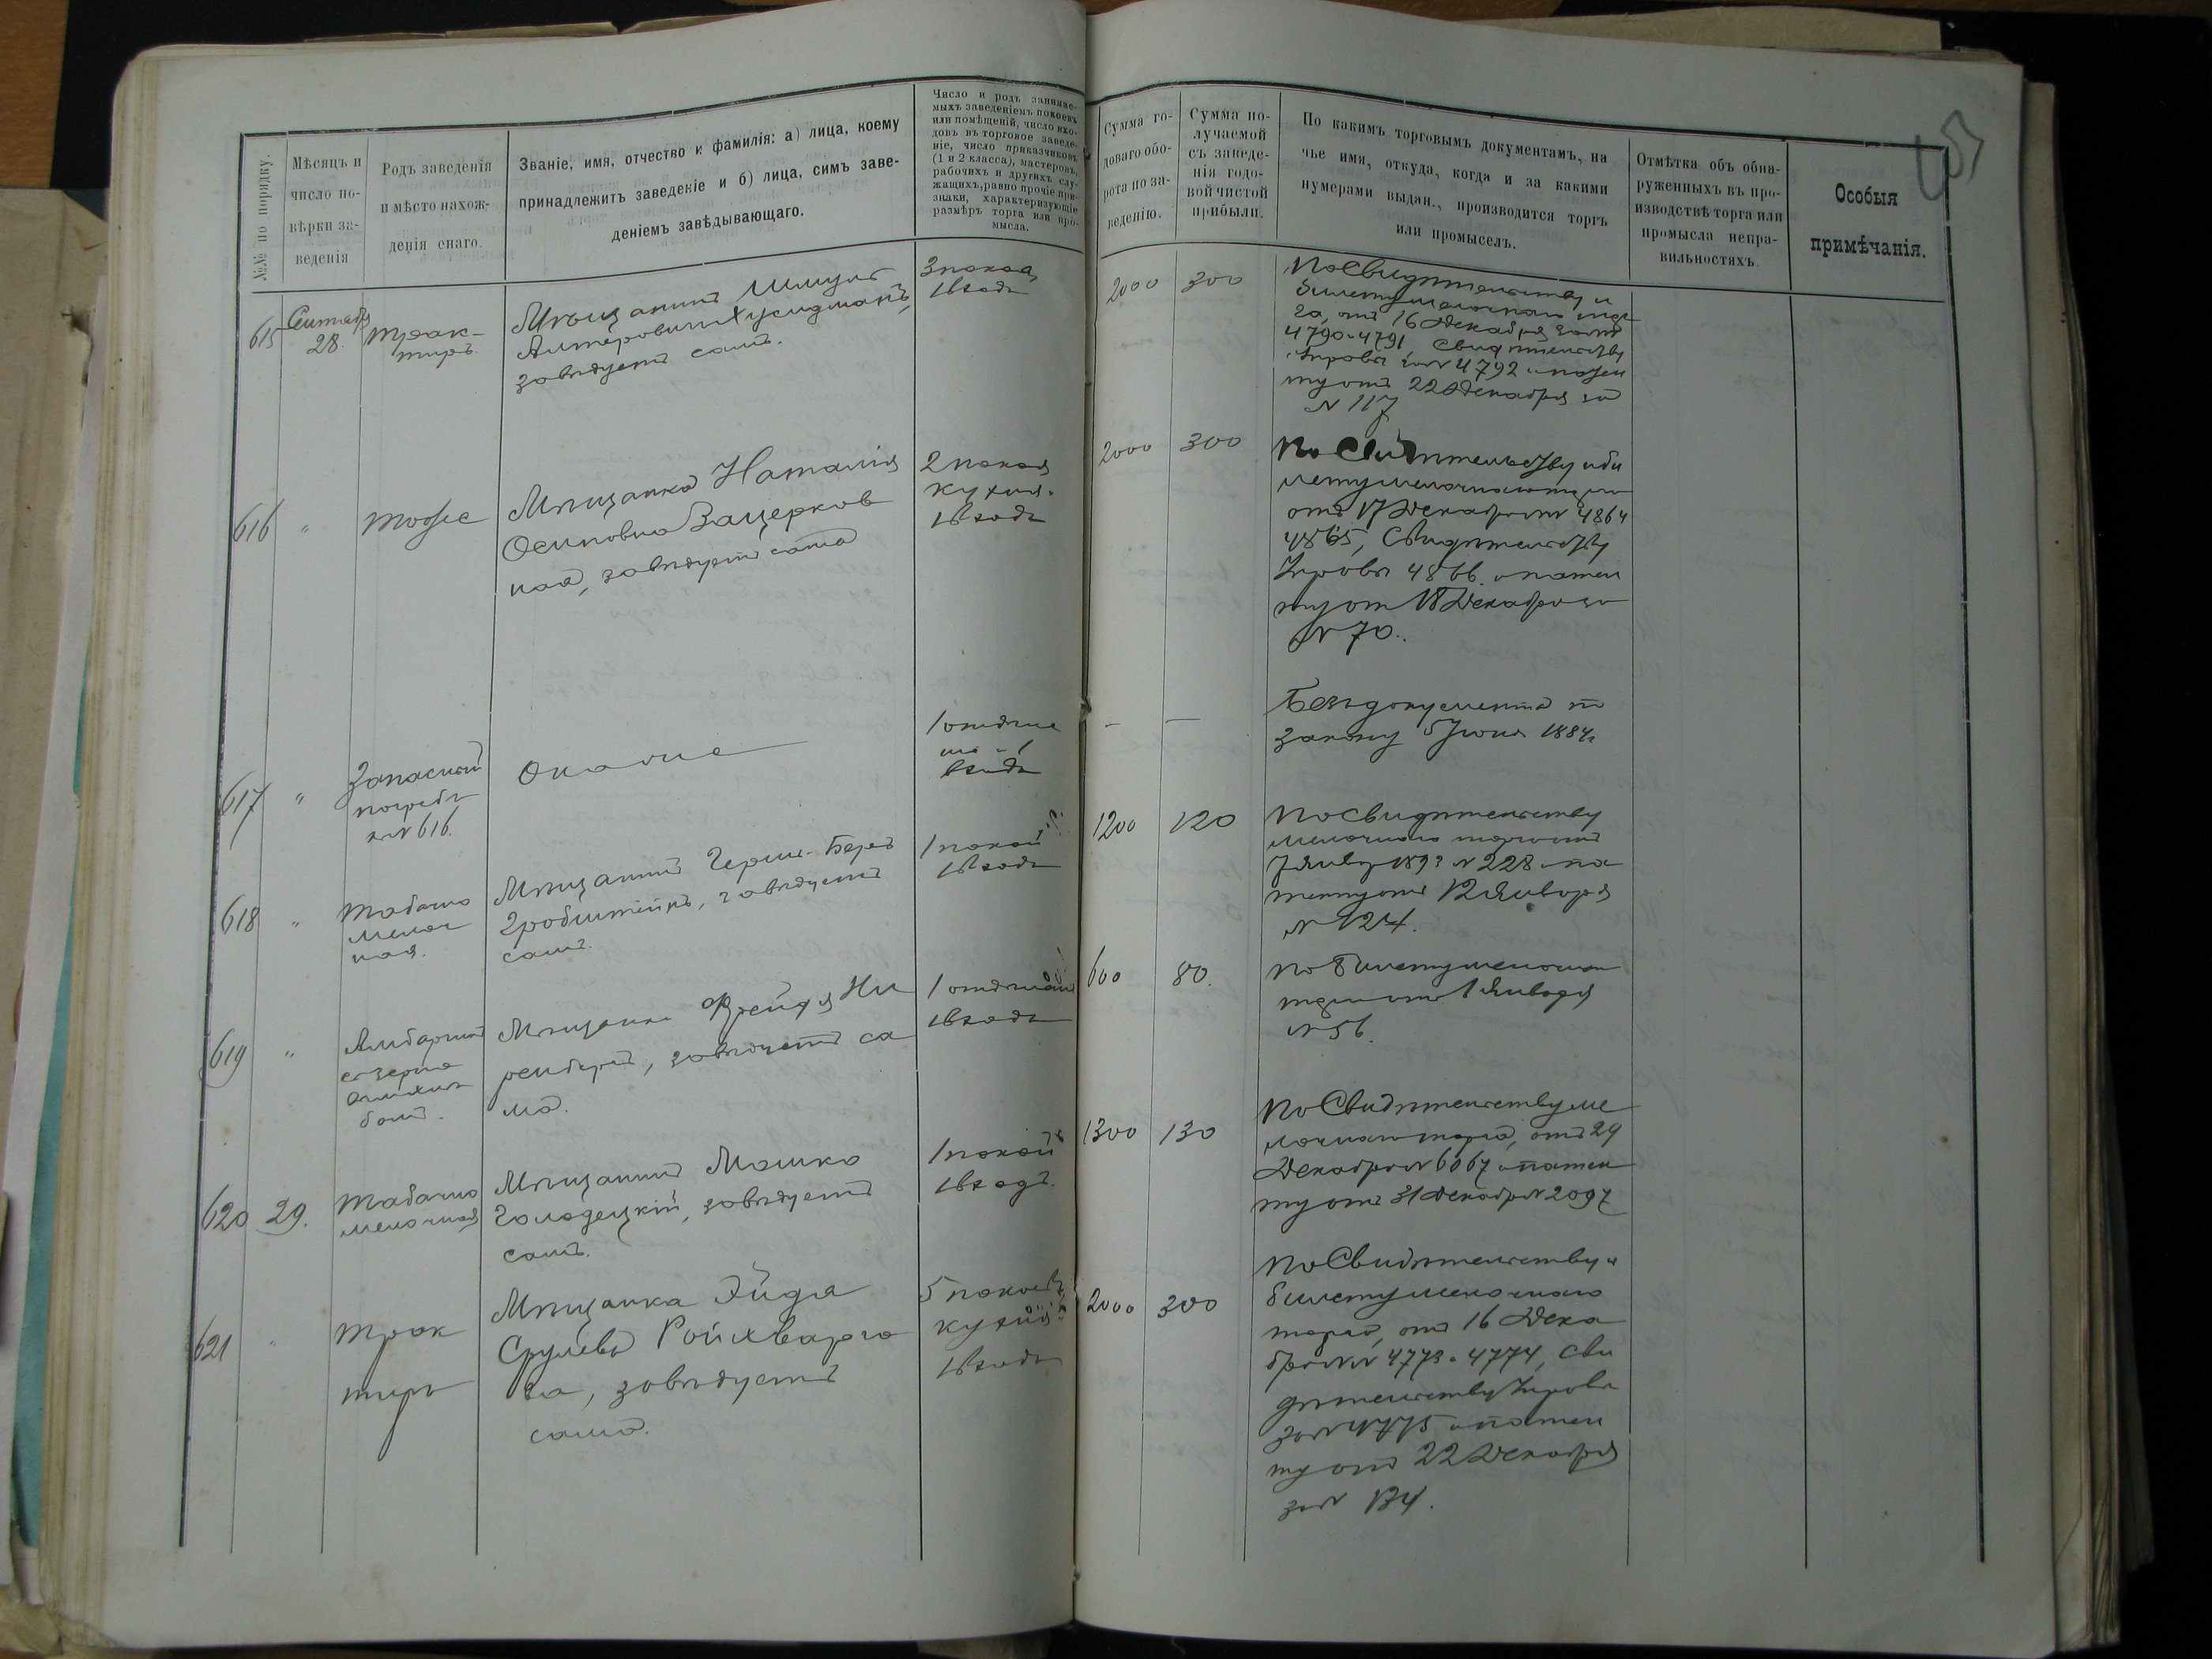 №№ по порядку.
Мѣсяцъ и
число по-
вѣрки за-
веденія
Родъ заведенія
и мѣсто нахож-
денія онаго.
Званіе, имя, отчество и фамилія: а) лица, коему
принадлежитъ заведеніе и б) лица, симъ заве-
деніемъ завѣдывающаго.
Число и родъ занимае-
мыхъ заведеніемъ покоевъ
или помѣщеній, число вхо-
довъ въ торговое заведе-
ніе, число приказчиковъ
(1 и 2 класса), мастеровъ,
рабочихъ и другихъ слу-
жащихъ, равно прочіе при-
знаки, характеризующіе
размѣръ торга или про-
мысла.
Сумма го-
доваго обо-
рота по за-
веденію.
Сумма по-
лучаемой
съ заведе-
нія годо-
вой чистой
прибыли.
По какимъ торговымъ документамъ, на
чье имя, откуда, когда и за какими
нумерами выдан., производится торгъ
или промыселъ.
Отмѣтка объ обна-
руженныхъ въ про-
изводствѣ торга или
промысла непра-
вильностяхъ
Особыя
примѣчанія.
615
Сентября
28.
Трак-
тиръ
Мѣщанинъ Шмуль
Алтеровичъ Хусидманъ,
завѣдуетъ самъ.
3 покоя,
1 входъ
2000
300
По Свидѣтельству и
билету мелочнаго тор
га, отъ 16 Декабря за №№
4790 и 4791, Свидѣтельству
Управы за № 4792 и патен
ту отъ 22 Декабря за
№ 117
616
"
тоже
Мѣщанка Наталія
Осиповна Вацерков
ная, завѣдуетъ сама
2 покоя
кухня.
1 входъ
2000
300
По Свидѣтельству и би
лету мелочнаго торга
отъ 17 Декабря №№ 4864
4865, Свидѣтельству
Управы 4866. и патен
ту от 18 Декабря за
№ 70.
617
"
Запасный
погребъ
къ № 616.
Она же
1 отдѣле
ніе и 1
входъ
—
—
Безъ документа по
закону 5 Июня 1884 г
618
"
Табачно
мелоч
ная.
Мѣщанинъ Герш-Беръ
Гробштейнъ, завѣдуетъ
самъ.
1 покой
1 входъ
1200
120
По свидѣтельству
мелочнаго торга отъ
7 Янвр 1893 № 228 и па
тенту отъ 12 Января
№ 124.
619
"
Амбарчикъ
съ зерно
Мѣщанка Фрейда Ни
ренбергъ, завѣдуетъ са
ма.
1 отдѣленіе
1 входъ
600
80.
По билету мелочнаго
торга отъ 1 Января
№ 56.
620
29.
Табачно
мелочная
Мѣщанинъ Мошко
Голодецкій, завѣдуетъ
самъ.
1 покой
1 входъ.
1300
130
По Свидѣтельству ме
лочнаго торга, отъ 29
Декабря № 6067 и патен
ту отъ 31 Декабря № 2097
621
"
Трак
тиръ
Мѣщанка Эйдя
Срулева Ройхварго
ва, завѣдуетъ
сама.
5 покоевъ
кухня
1 входъ
2000
300
По Свидѣтельству и
билету мелочнаго
торга, отъ 16 Дека
бря №№ 4773 и 4774, Сви
дѣтельству Управы
за № 4775 и патен
ту отъ 22 Декабря
за №